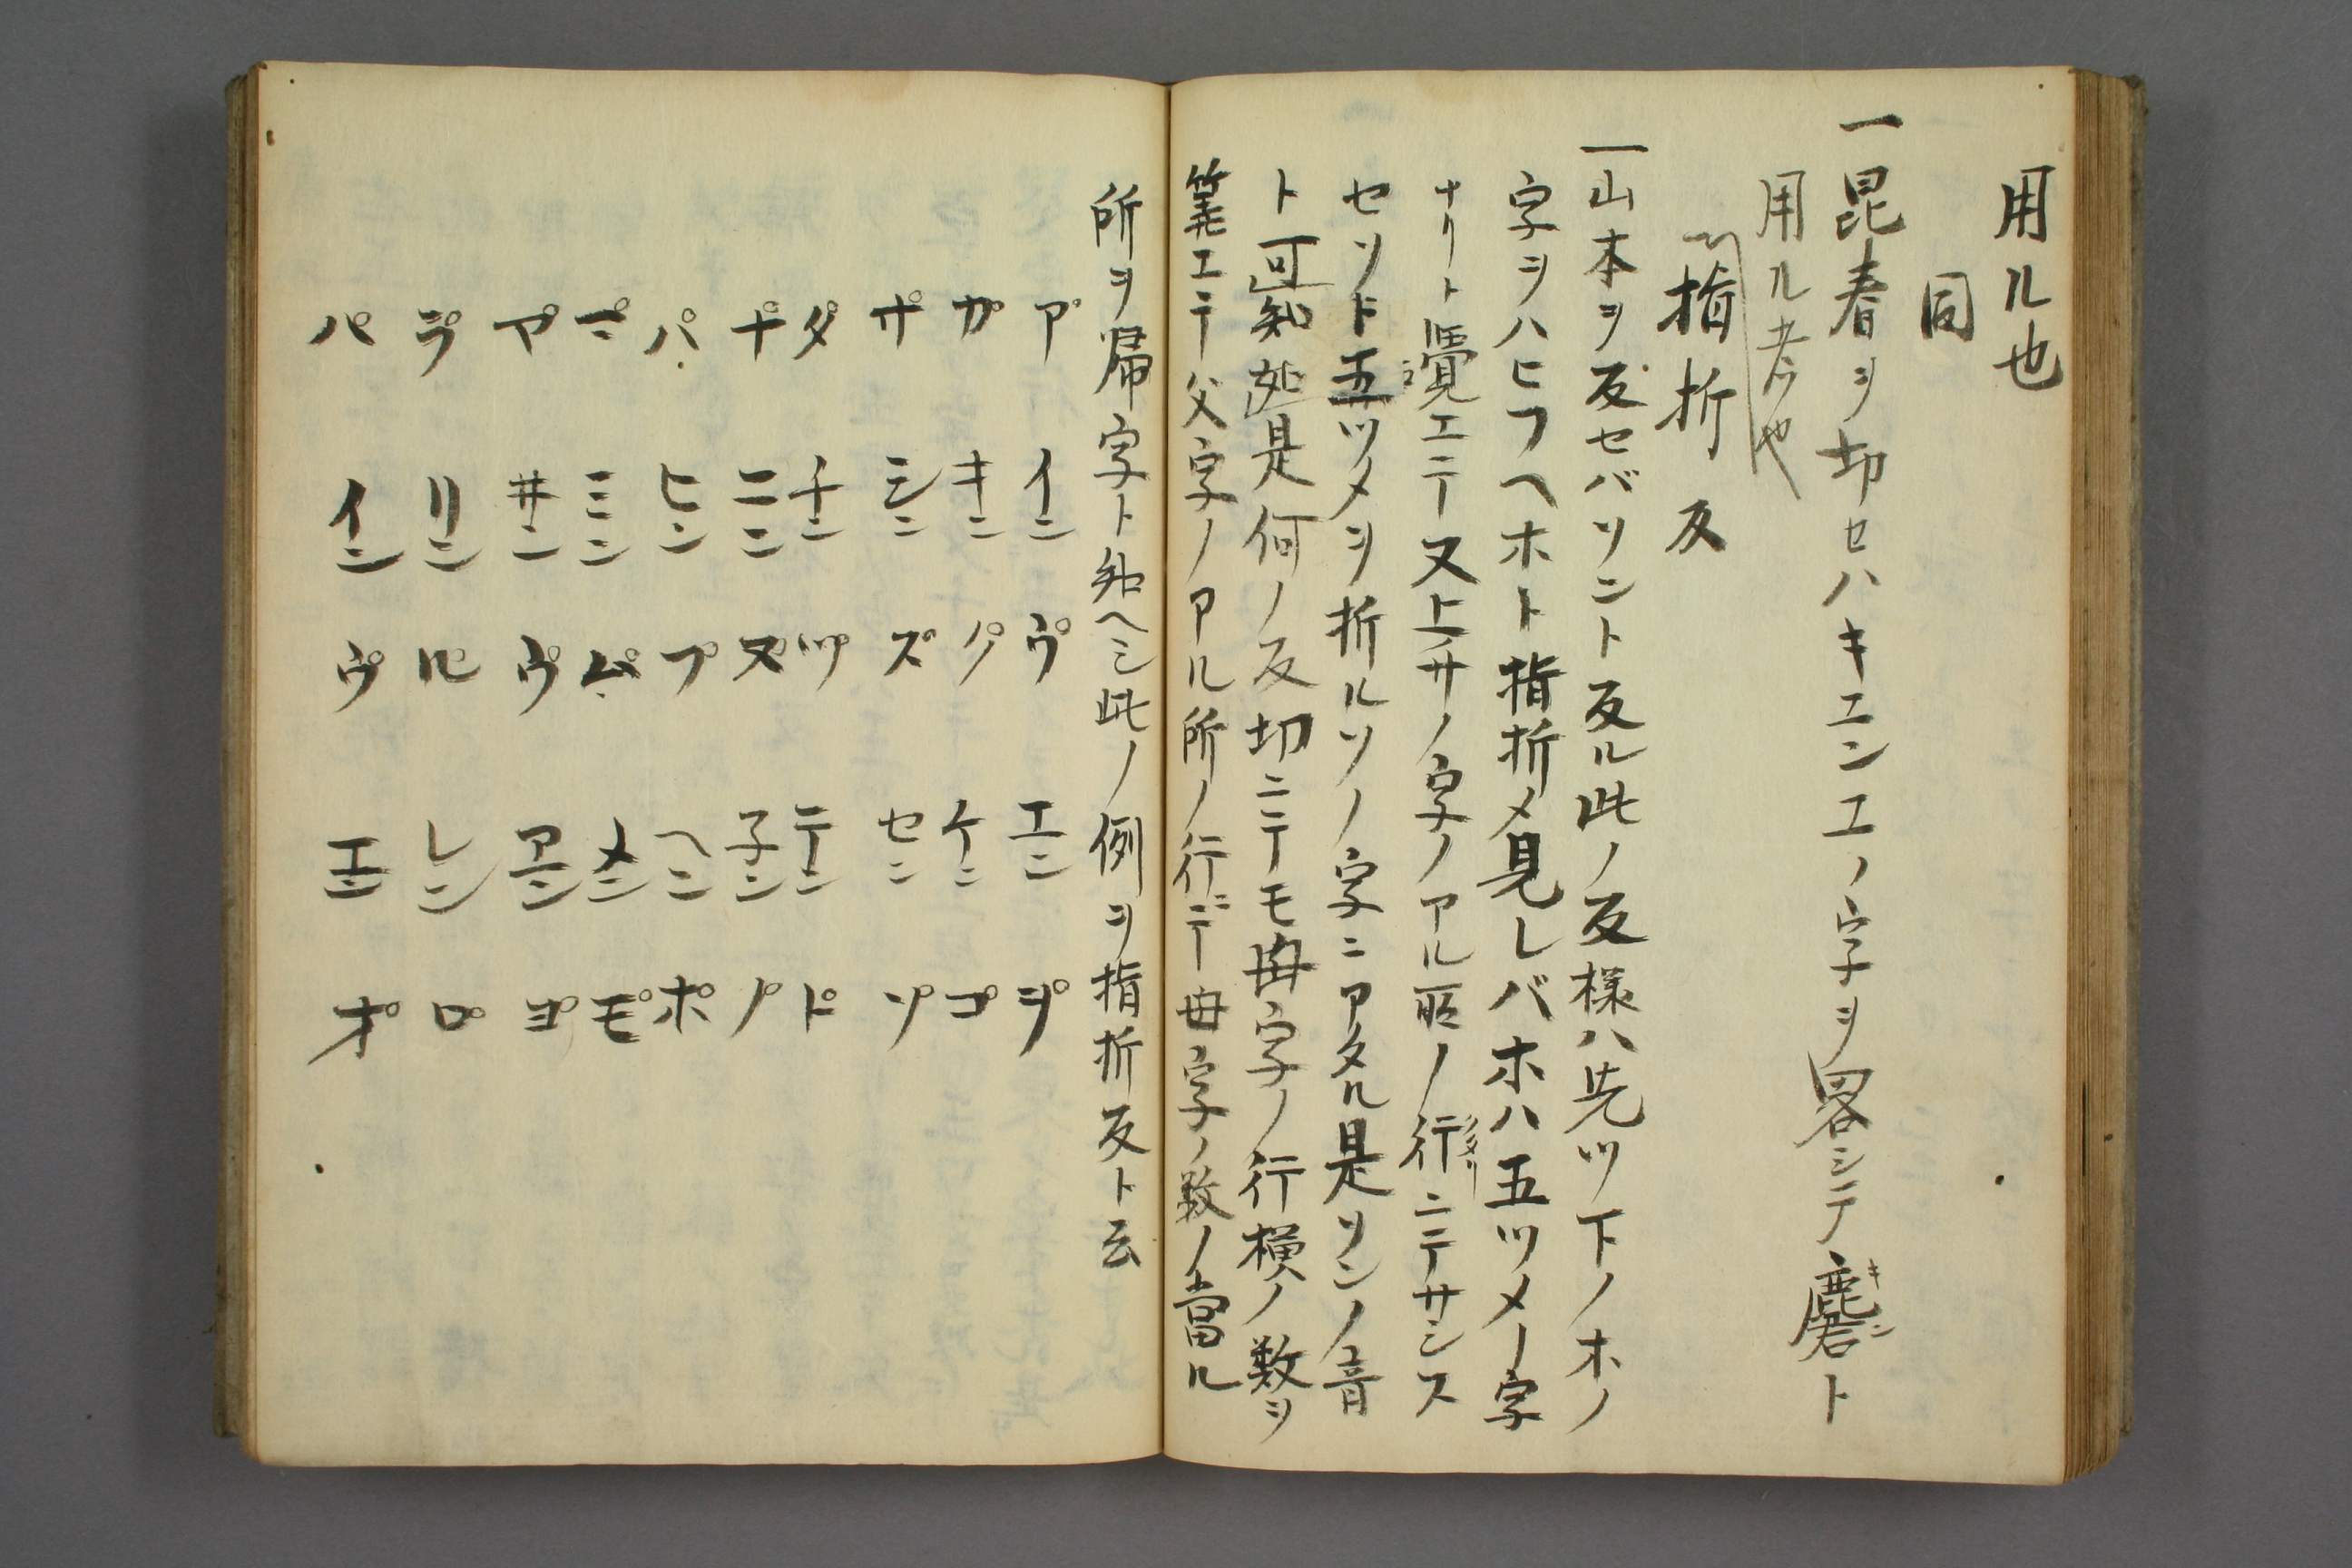 用ル也
同
一昆春ヲ切セハキエンエノ字ヲ畧シテ麏ト
キン
用ル者也
指折反
一山本ヲ反セバソント反ル此ノ反様ハ先ツ下ノホノ
字ヲハヒフヘホト指折メ見レバホハ五ツメノ字
ナリト覺エテ又上サノ字ノアル所ノ行ニテサシス
セソト五ツメヲ折ルソノ字ニアタル是ソンノ音
ト可知処是何ノ反切ニテモ母字ノ行横ノ数ヲ
筭エテ父字ノアル所ノ行ニテ母字ノ数ノ當ル
所ヲ帰字ト知ヘシ此ノ例ヲ指折反ト云
ア イン ウ エン ヲ
カ キン ク ケン コ
サ シン ス セン ソ
タ チン ツ テン ト
ナ ニン ヌ 子ン ノ
ハ ヒン フ ヘン ホ
マ ミン ム メン モ
ヤ ヰン ウ ヱン ヨ
ラ リン ル レン ロ
ハ イン ウ エン オ